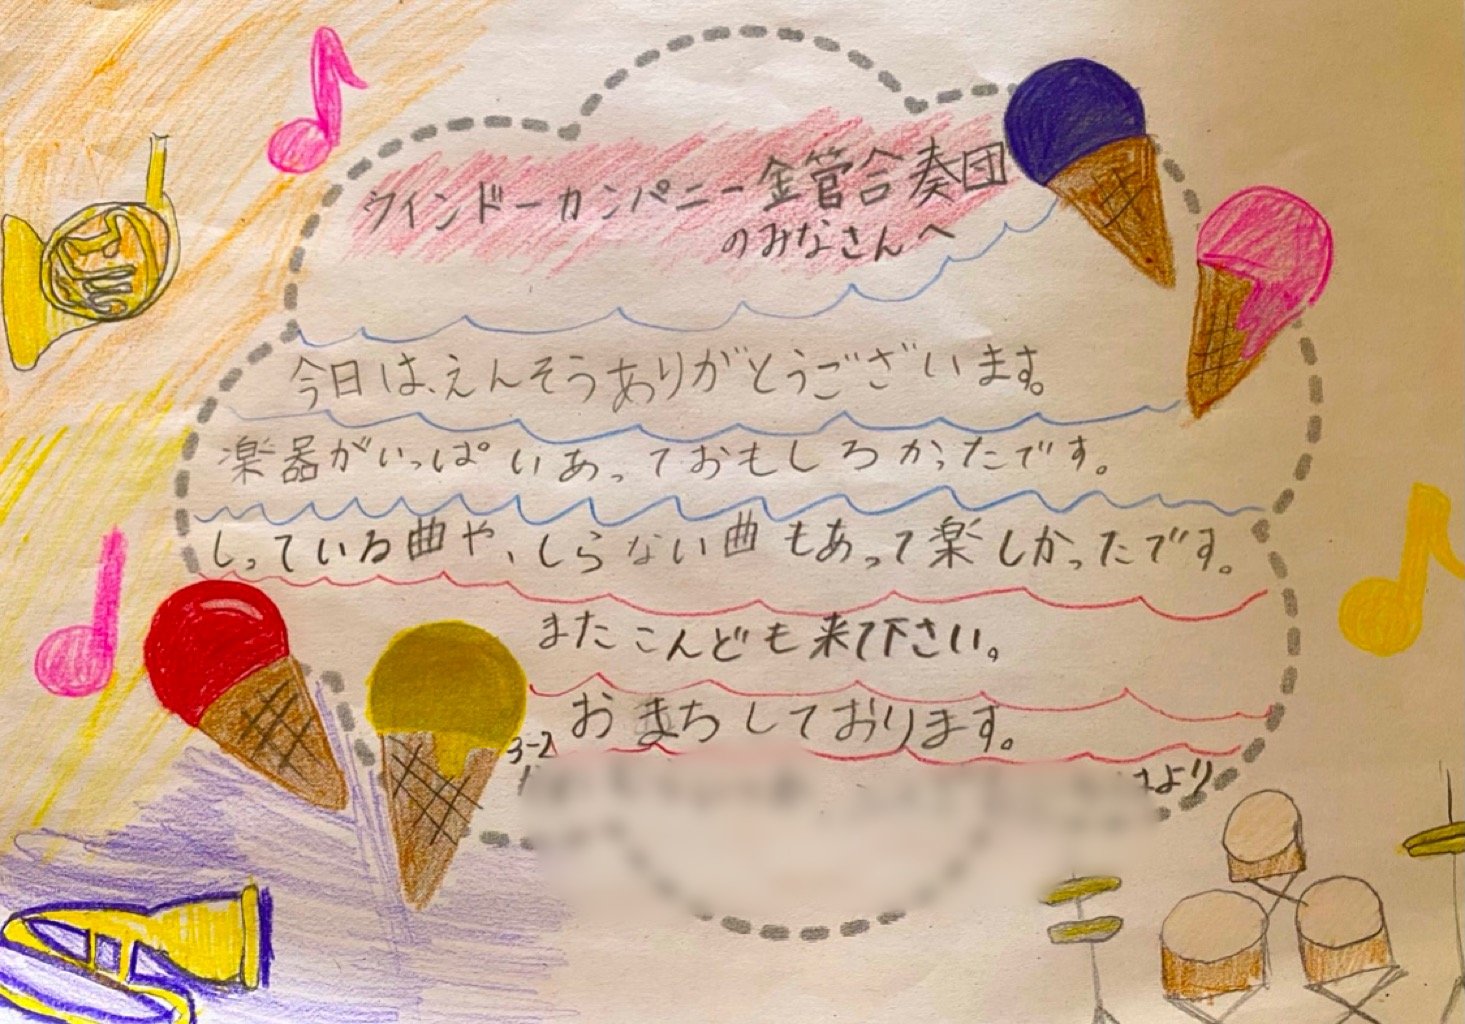 ウインドーカンパニー金管合奏団
のみなさんへ
今日は、えんそうありがとうございます。
楽器がいっぱいあっておもしろかったです。
しっている曲や、しらない曲もあって楽しかったです。
またこんども来て下さい。
おまちしております。
3-2
より